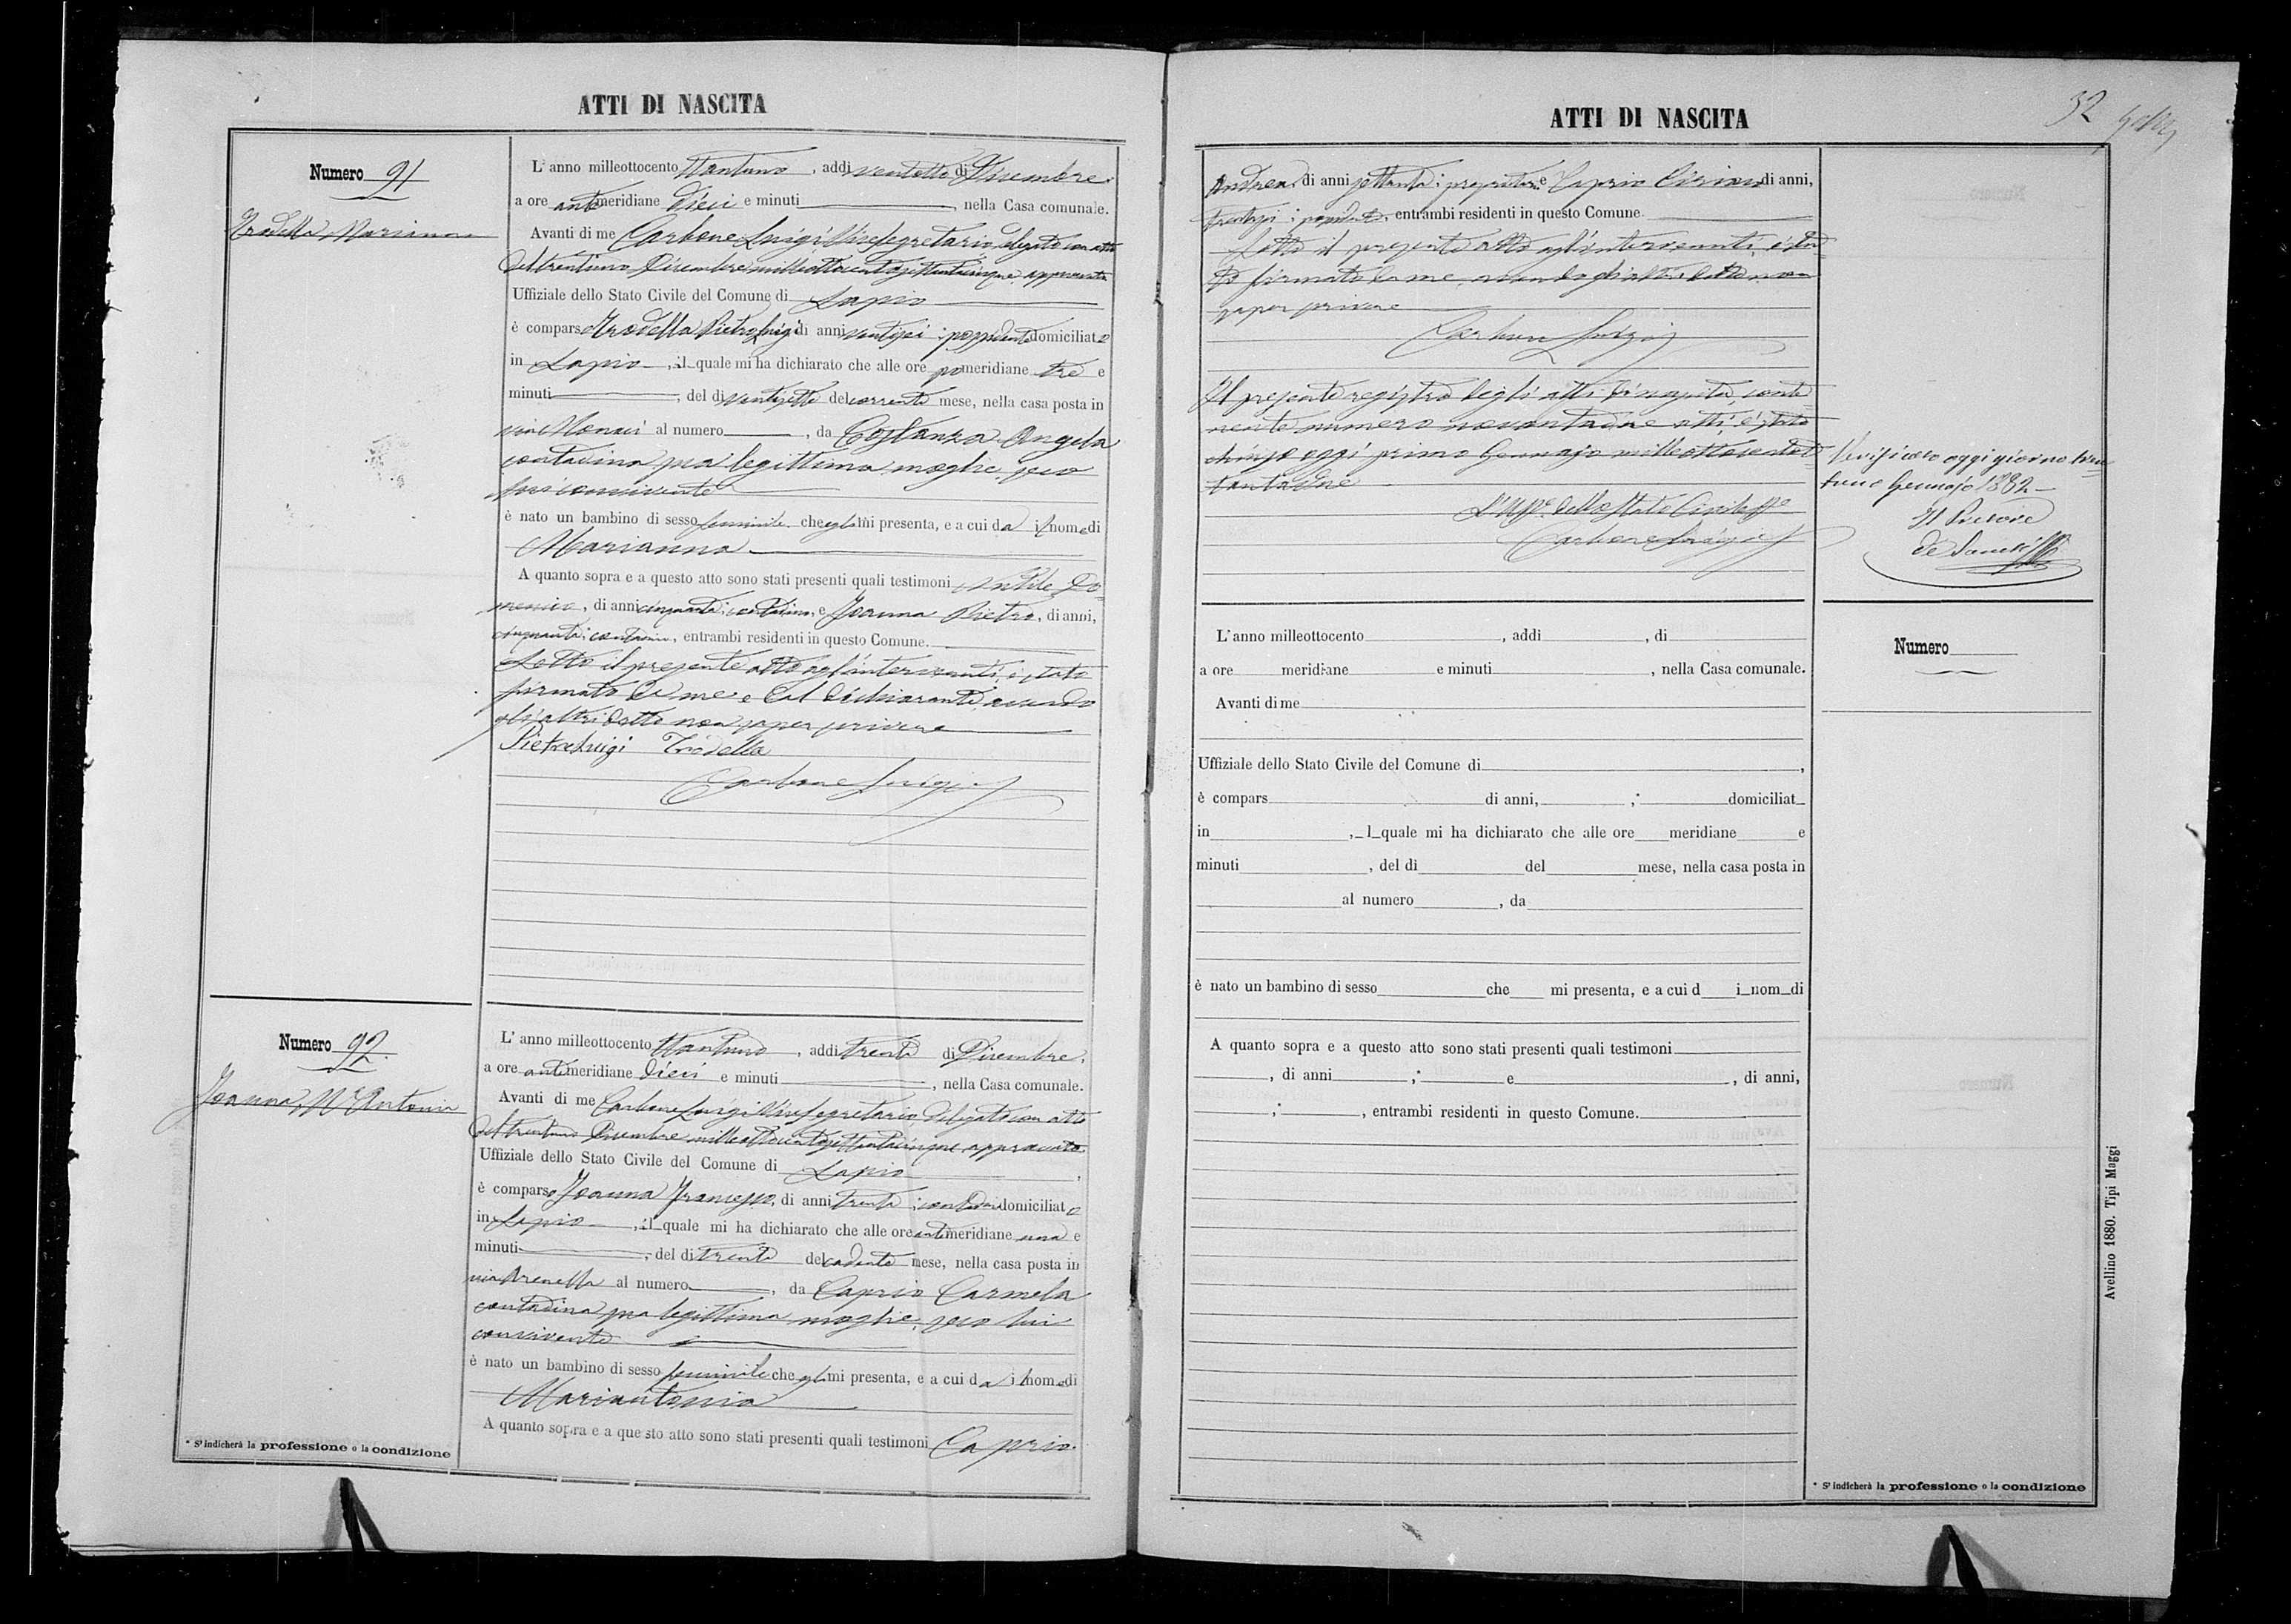 ATTI DI NASCITA
Numero 91
Trodella Marianna
L'anno milleottocento ttantuno, addi ventotto di Dicembre
a ore antimeridiane dieci e minuti, nella Casa comunale.
Avanti di me Carbone Luigi Vicesegretario, delegato con atto
del trentuno Dicembre milleottocentosettantacinque approvato
Uffiziale dello Stato Civile del Comune di Lapio
è comparso Trodella Pietroluigi di anni ventisei; possidente domiciliato
in Lapio, il quale mi ha dichiarato che alle ore pomeridiane tre e
minuti, del di ventisette del corrente mese, nella casa posta in
via Monaci al numero, da Costanza Angela
contadina sua legittima moglie, seco
lui convivente
è nato un bambino di sesso femminile che egli mi presenta, e a cui da il nome di
Marianna
A quanto sopra e a questo atto sono stati presenti quali testimoni Do-
menico, di anni cinquanta; contadino, e Joanna Pietro, di anni,
cinquanta; contadino, entrambi residenti in questo Comune.
Letto il presente atto agl'intervenuti, è stato
firmato da me e dal dichiarante avendo
gli altri detto non saper scrivere
Pietroluigi Trodella
Carbone Luigi
Numero 92.
Joanna, Ma Antonia
L'anno milleottocento ttantuno, addi trenta di Dicembre,
a ore antimeridiane dieci e minuti, nella Casa comunale.
Avanti di me Carbone Luigi Vicesegretario, delegato con atto
del trentuno Dicembre milleottocentosettantacinque approvato
Uffiziale dello Stato Civile del Comune di Lapio,
è comparso Joanna Francesco, di anni trenta; contadino domiciliato
in Lapio, il quale mi ha dichiarato che alle ore antimeridiane una e
minuti, del di trenta del cadente mese, nella casa posta in
via Arenella al numero, da Caprio Carmela
contadina sua legittima moglie, seco lui
convivente
è nato un bambino di sesso femminile che egli mi presenta, e a cui da il nome di
Mariantonia
A quanto sopra e a questo atto sono stati presenti quali testimoni Caprio
* S'indicherà la professione o la condizione
ATTI DI NASCITA
32
Andrea, di anni settanta; proprietario e Caprio Ciriaco di anni,
trentasei; possidente, entrambi residenti in questo Comune.
Letto il presente atto agl'intervenuti, è sta-
to firmato da me, avendo gli altri detto non
saper scrivere
Carbone Luigi
Il presente registro degli atti di nascita, conte-
nente numero novantadue atti, è stato
chiuso oggi primo Gennajo milleottocentot-
tantadue
L'Uffe. dello Stato Civile
Carbone Luigi
Verificato oggi giorno tren-
tuno Gennajo 1882
Il Pretore
L'anno milleottocento, addi, di
a ore meridiane e minuti, nella Casa comunale.
Avanti di me
Uffiziale dello Stato Civile del Comune di,
è compars di anni,; * domiciliat
in, l quale mi ha dichiarato che alle ore meridiane e
minuti, del di del mese, nella casa posta in
al numero, da
è nato un bambino di sesso che mi presenta, e a cui d i nom di
A quanto sopra e a questo atto sono stati presenti quali testimoni
, di anni;* e, di anni,
;*, entrambi residenti in questo Comune.
Numero
Avellino 1880. Tipi Maggi
* S'indicherà la professione o la condizione